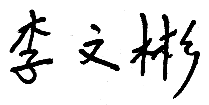 李文彬